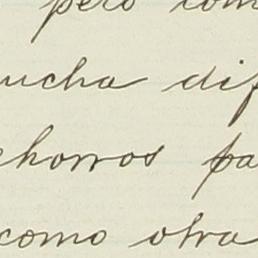 pero com
ucha dif
chorros pa
como otra